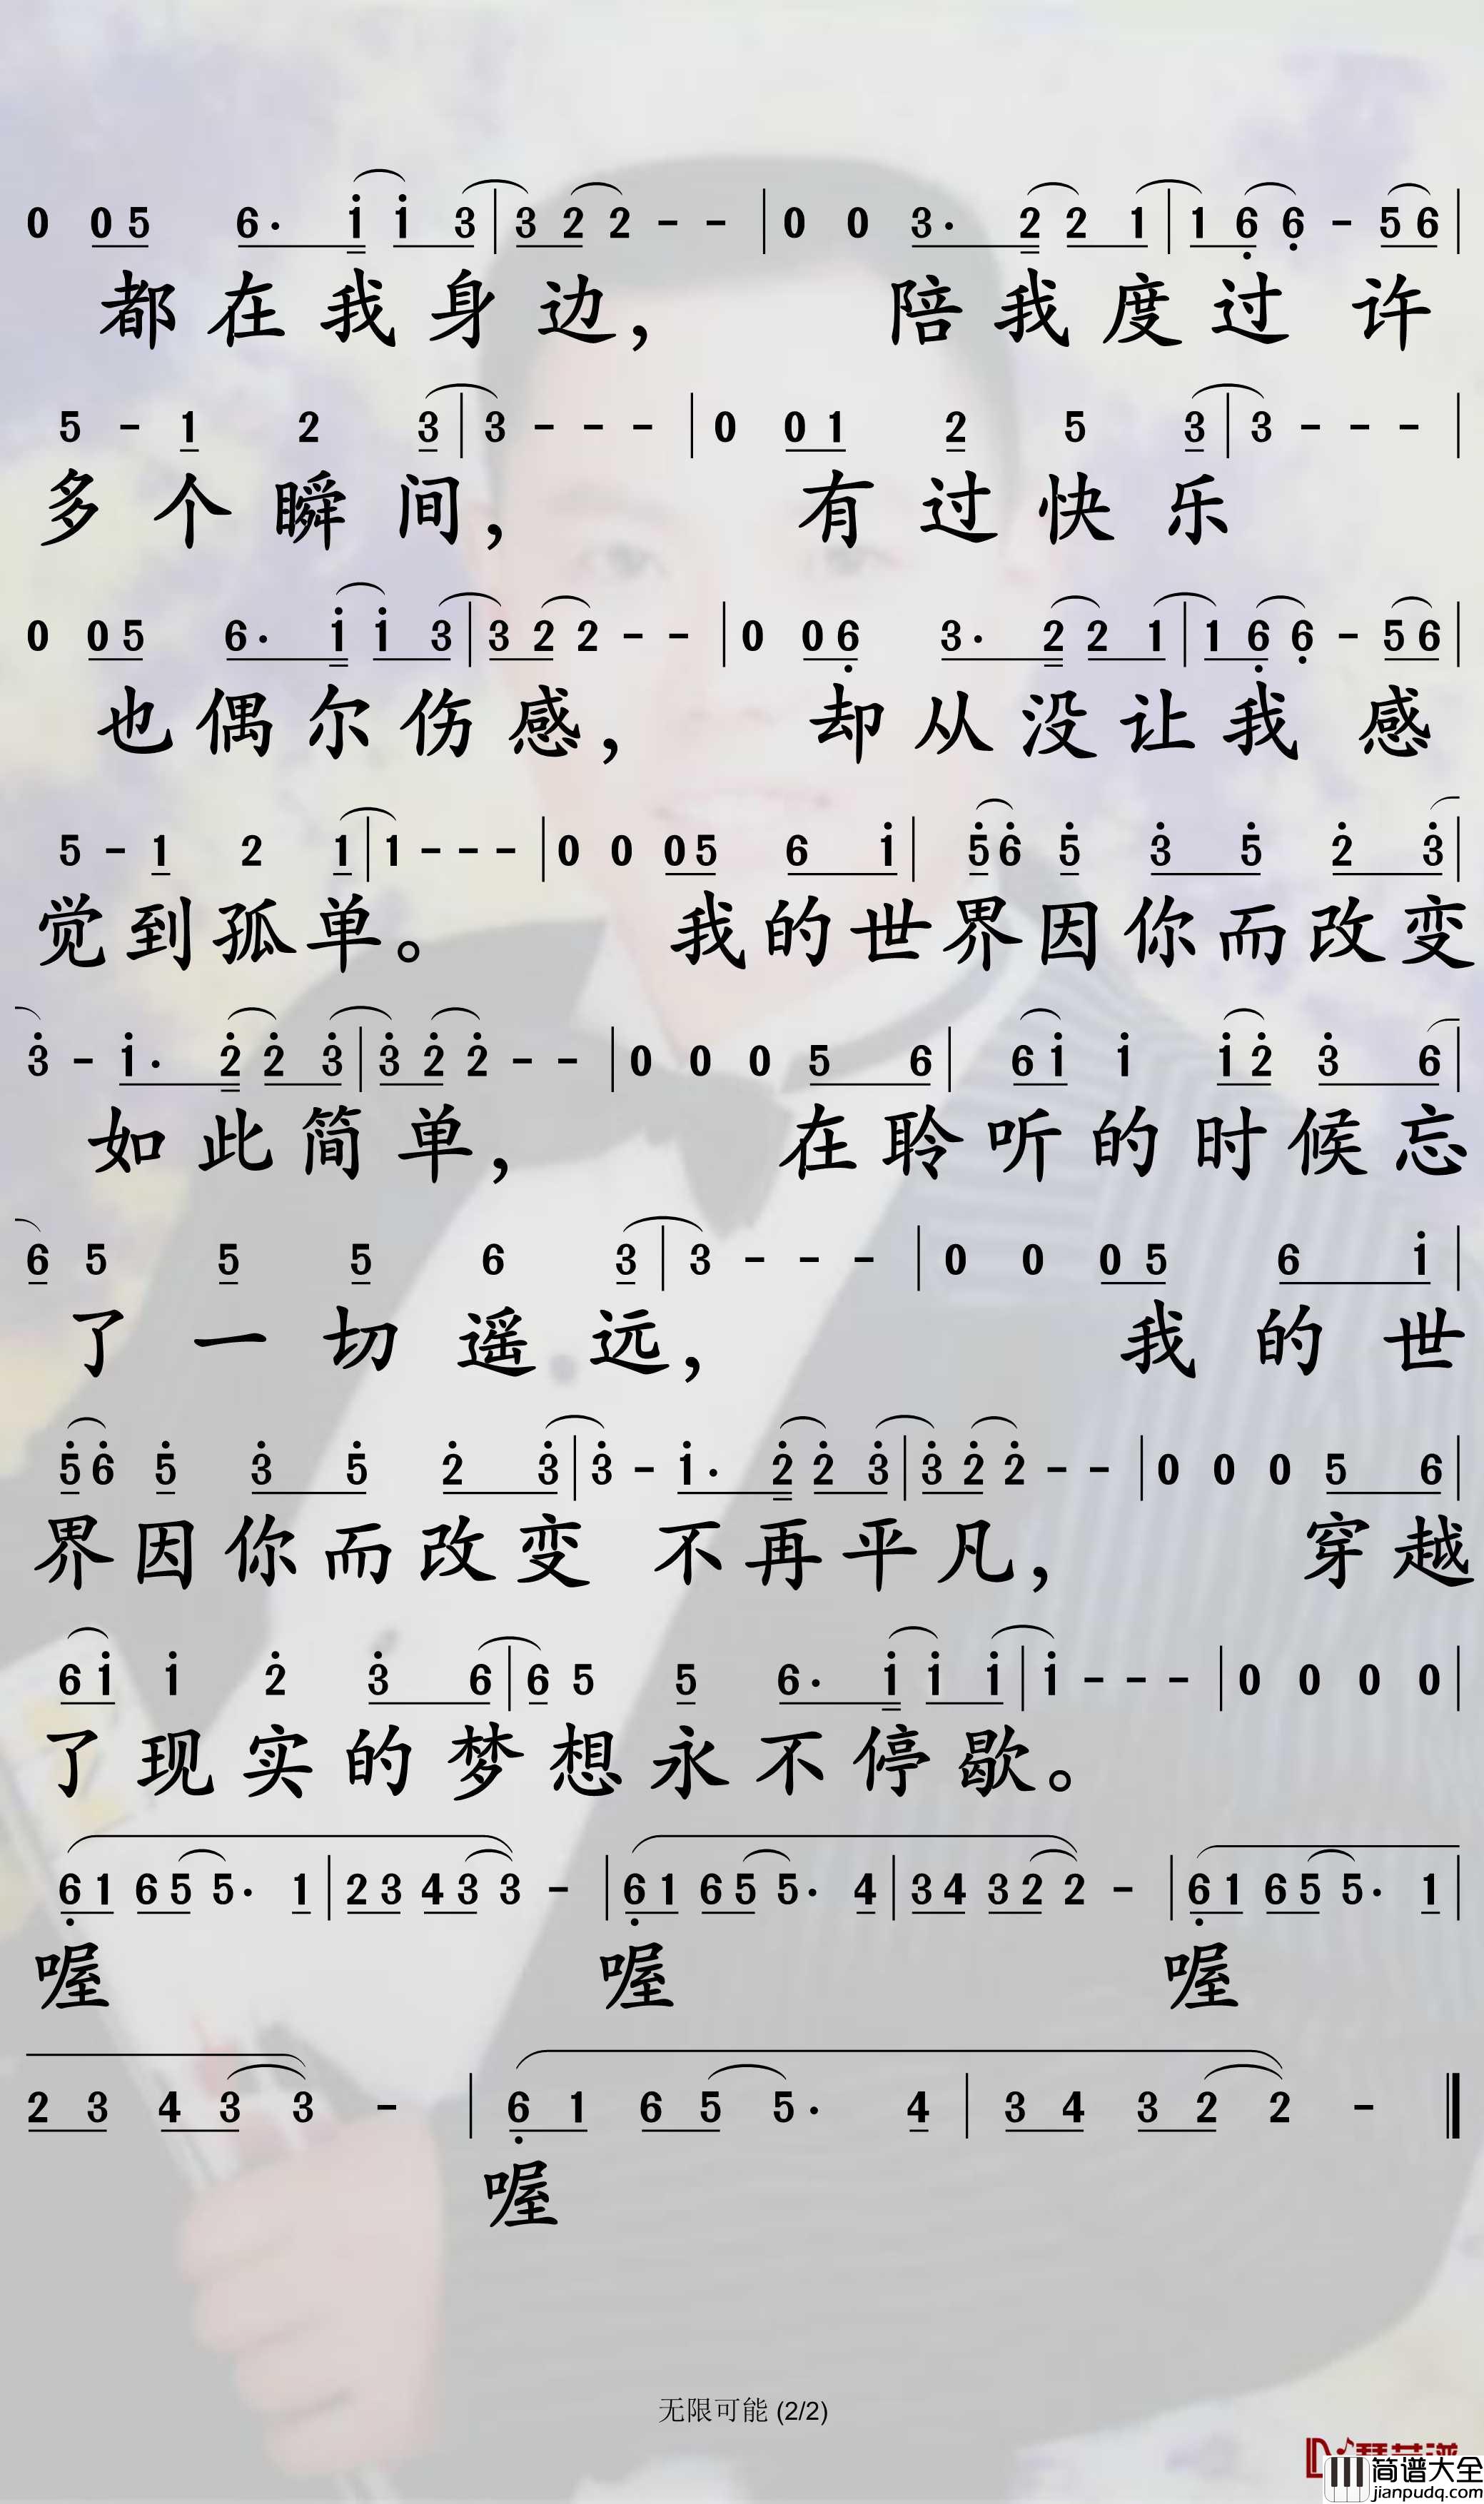 0 05 6· i i 3 | 3 2 2 - - | 0 0 3· 2 2 1 | 1 6 6 - 5 6 |
都在我身边， 陪我度过 许
5 - 1 2 3 | 3 - - - | 0 0 1 2 5 3 | 3 - - - |
多个瞬间， 有过快乐
0 0 5 6· i i 3 | 3 2 2 - - | 0 0 6 3· 2 2 1 | 1 6 6 - 5 6 |
也偶尔伤感， 却从没让我 感
5 - 1 2 1 | 1 - - - | 0 0 0 5 6 i | 5 6 5 3 5 2 3 |
觉到孤单。 我的世界因你而改变
3 - i· 2 2 3 | 3 2 2 - - | 0 0 0 5 6 | 6 i i i 2 3 6 |
如此简单， 在聆听的时候忘
6 5 5 5 6 3 | 3 - - - | 0 0 0 5 6 i |
了一切遥远， 我的世
5 6 5 3 5 2 3 | 3 - i· 2 2 3 | 3 2 2 - - | 0 0 0 5 6 |
界因你而改变 不再平凡， 穿越
6 i i 2 3 6 | 6 5 5 6· i i i | i - - - | 0 0 0 0 |
了现实的梦想永不停歇。
6 1 6 5 5· 1 | 2 3 4 3 3 - | 6 1 6 5 5· 4 | 3 4 3 2 2 - | 6 1 6 5 5· 1 |
喔 喔 喔
2 3 4 3 3 - | 6 1 6 5 5· 4 | 3 4 3 2 2 - ‖
喔
无限可能 (2/2)
简谱大全
jianpudq.com